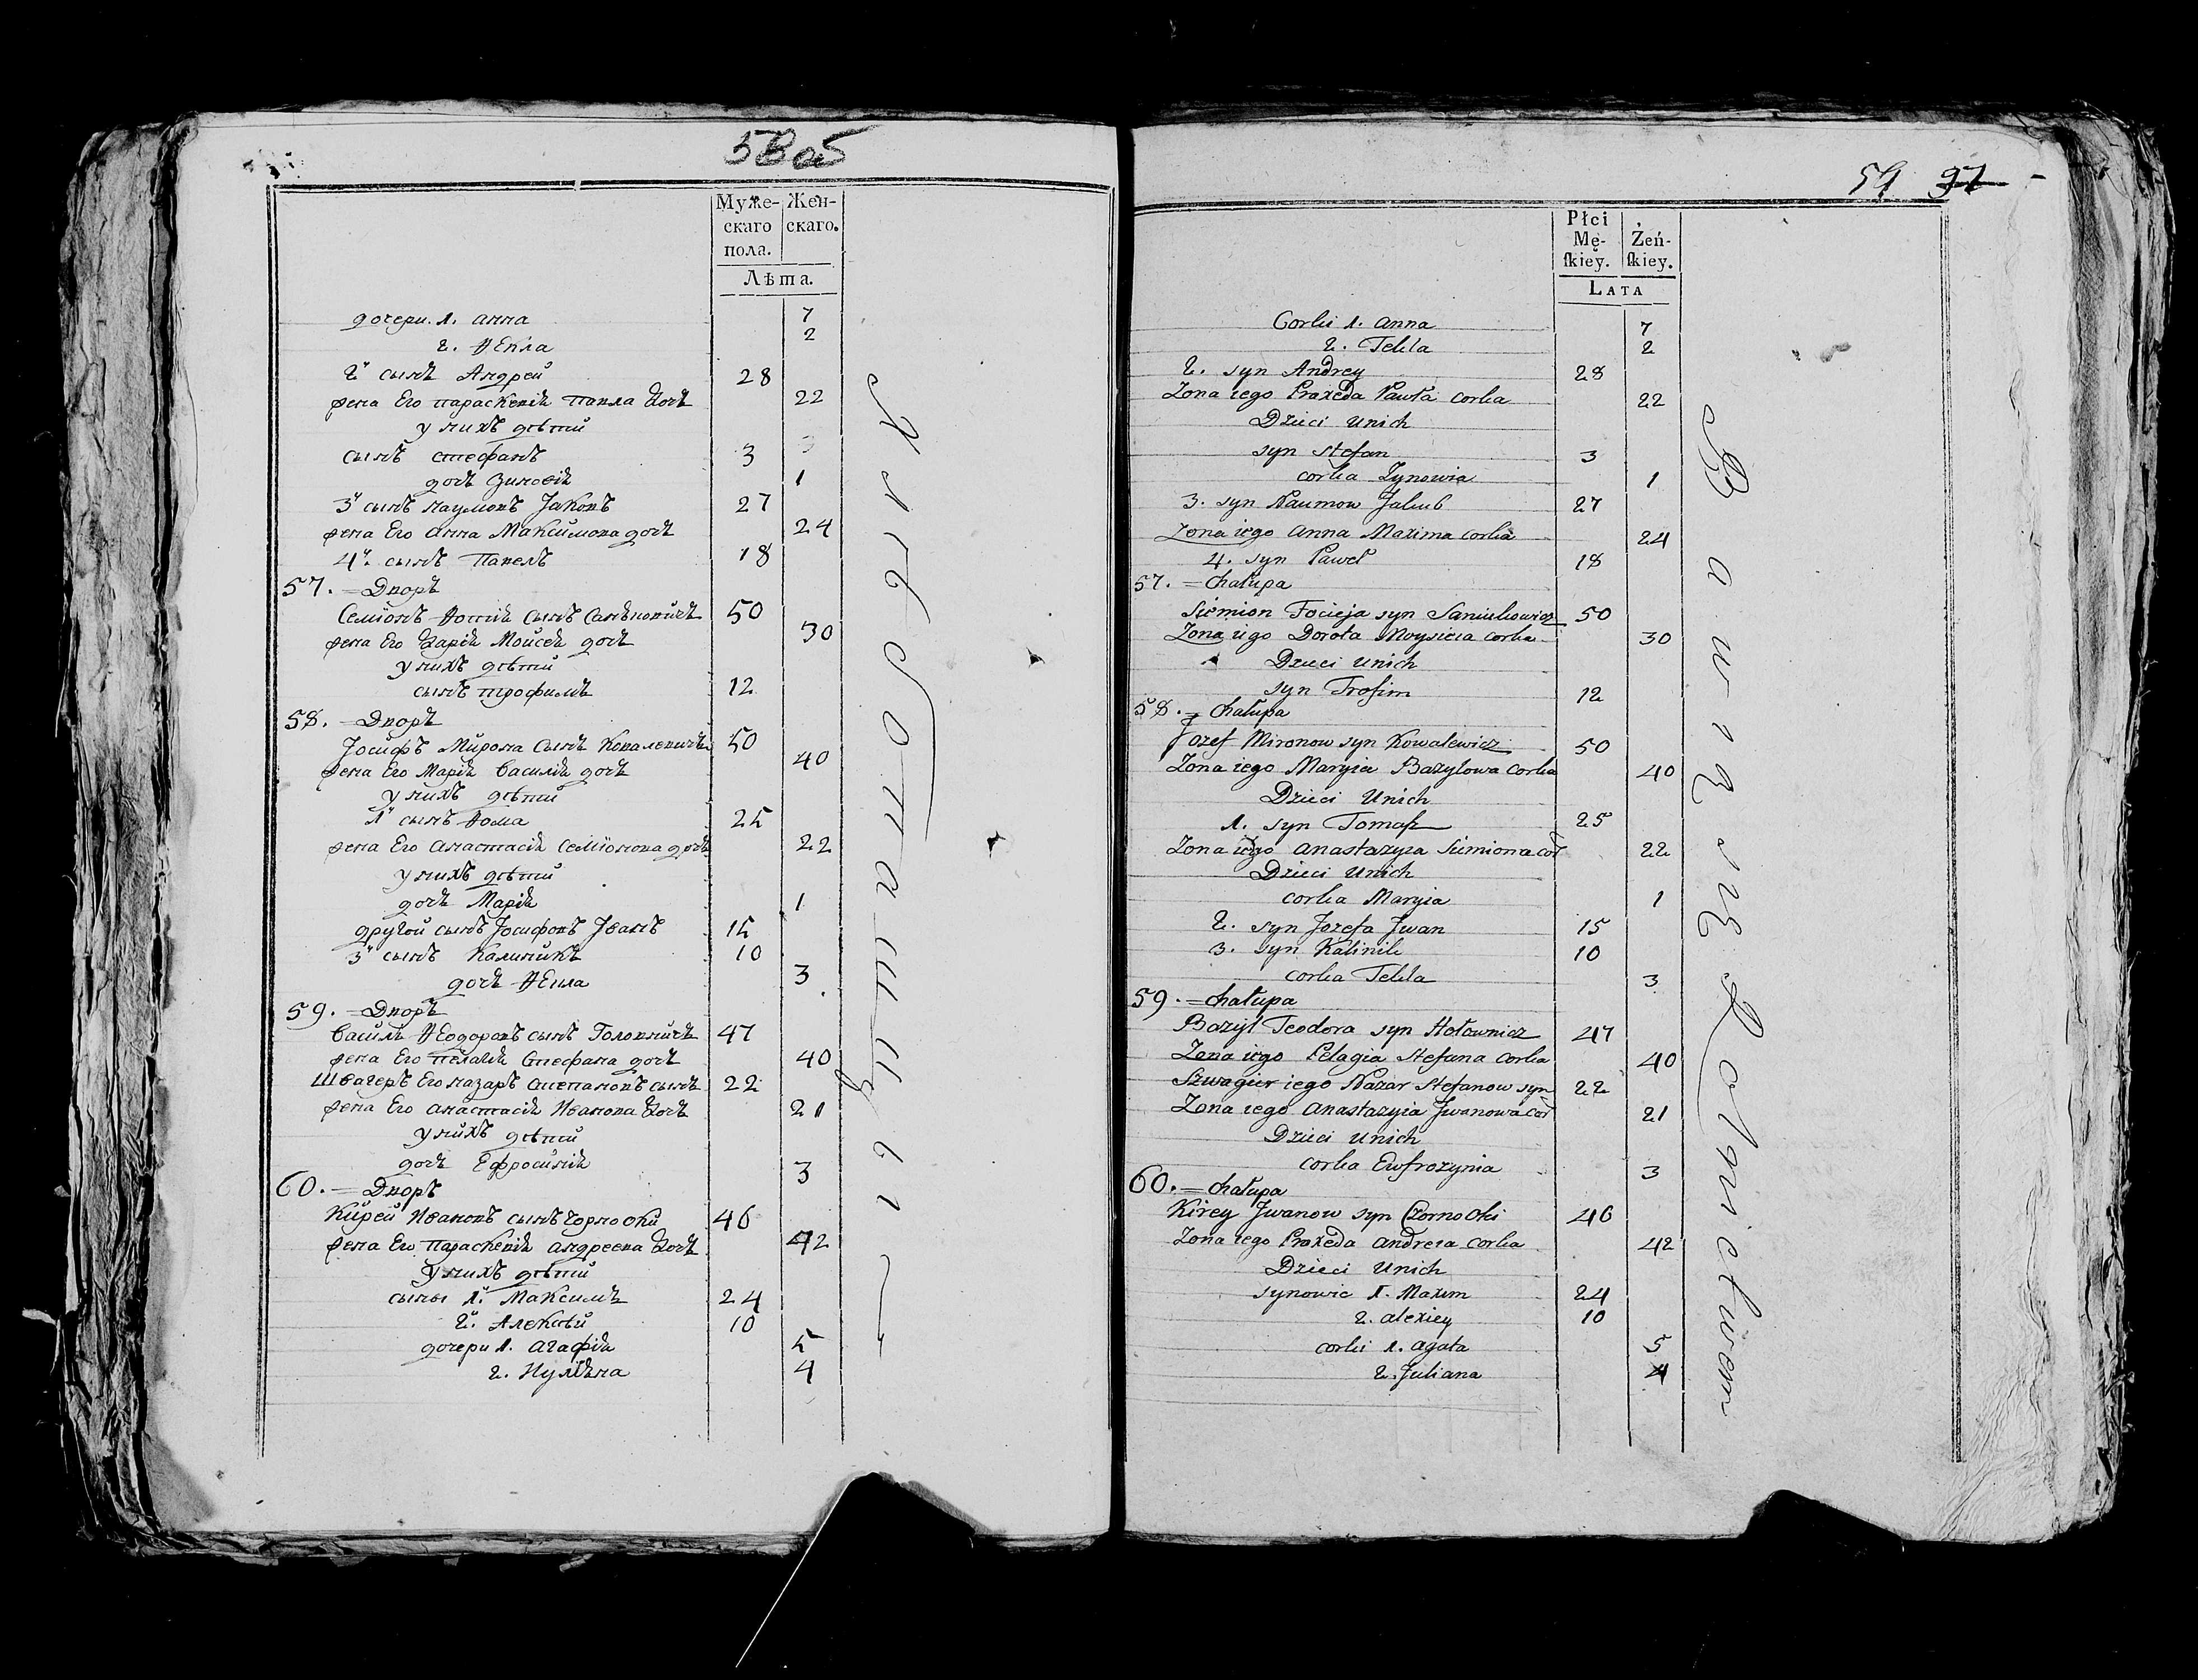 58 об
Муже-
скаго
пола.
Жен-
скаго.
Лѣта.
дочери. 1. анна 7
2. Ѳекла 2
2й сынъ Андрей 28
жена Его параскевія павла дочь 22
у нихъ дѣти
сынъ стефанъ 3
дочь Зиновія 1
3й сынъ наумовъ Јаковъ 27
жена Его анна Максимова дочь 24
4й сынъ Павелъ 18
57. = Дворъ
Семіонъ Фотія сынъ 50
жена Его Дарія Моисея дочь 30
у нихъ дѣти
сынъ трофимъ 12
58. = Дворъ
Јосифъ Мирона сынъ Ковалевичъ 50
жена Его Марія василія дочь 40
у нихъ дѣти
1й сынъ Ѳома 25
жена Его анастасія семіонова дочь 22
у нихъ дѣти
дочь Марія 1
другой сынъ Јосифовъ Јванъ 15
3й сынъ Калиникъ 10
дочь Ѳекла 3
59. = Дворъ
василь Ѳеодоровъ сынъ Головничъ 47
жена Его пелагія Стефана дочь 40
Швагеръ Его назаръ степановъ сынъ 22
жена Его анастасія Иванова дочь 21
у нихъ дѣти
дочь Ефросинія 3
60. = Дворъ
Кирей Ивановъ сынъ Чорноокй 46
жена Его Параскевія андреева дочь 42
у нихъ дѣти
сыны 1й Максимъ 24
2й. Алексѣй 10
дочери 1. агафія 5
2. Иуліяна 4
59 97
Płci
Mę-
ſkiey.
Żeń-
ſkiey.
LATA
Corki 1. anna 7
2. Tekla 2
2. syn Andrey 28
Zona iego Praxeda Pawła corka 22
Dzieci unich
syn Stefan 3
corka Zynowia 1
3. syn Naumow Jakub 27
Zona iego anna Maxima corka 24
4. syn Paweł 18
57. = chałupa
Siemion Focieja syn Saniukowicz 50
Zona iego Dorota Moysieia corka 30
Dzieci unich
syn Trofim 12
58. = chałupa
Jozef Mironow syn Kowalewicz 50
Zona iego Maryia Bazylowa corka 40
Dzieci Unich
1. syn Tomaſz 25
Zona iego anastazyia Siemiona cor 22
Dzieci unich
corka Maryia 1
2. syn Jozefa Jwan 15
3. syn Kalinik 10
corka Tekla 3
59. = chałupa
Bazyl Teodora syn Hołownicz 47
Zona iego Pelagia Stefana corka 40
Szwagier iego Nazar Stefanow syn 22
Zona iego anastazyia Jwanowa cor 21
Dzieci unich
corka Ewfrozynia 3
60. = chałupa
Kirey Jwanow syn Czornooki 46
Zona iego Praxeda andreia corka 42
Dzieci Unich
synowie 1. Maxim 24
2. alexiey 10
corki 1. agata 5
2. Juliana 4